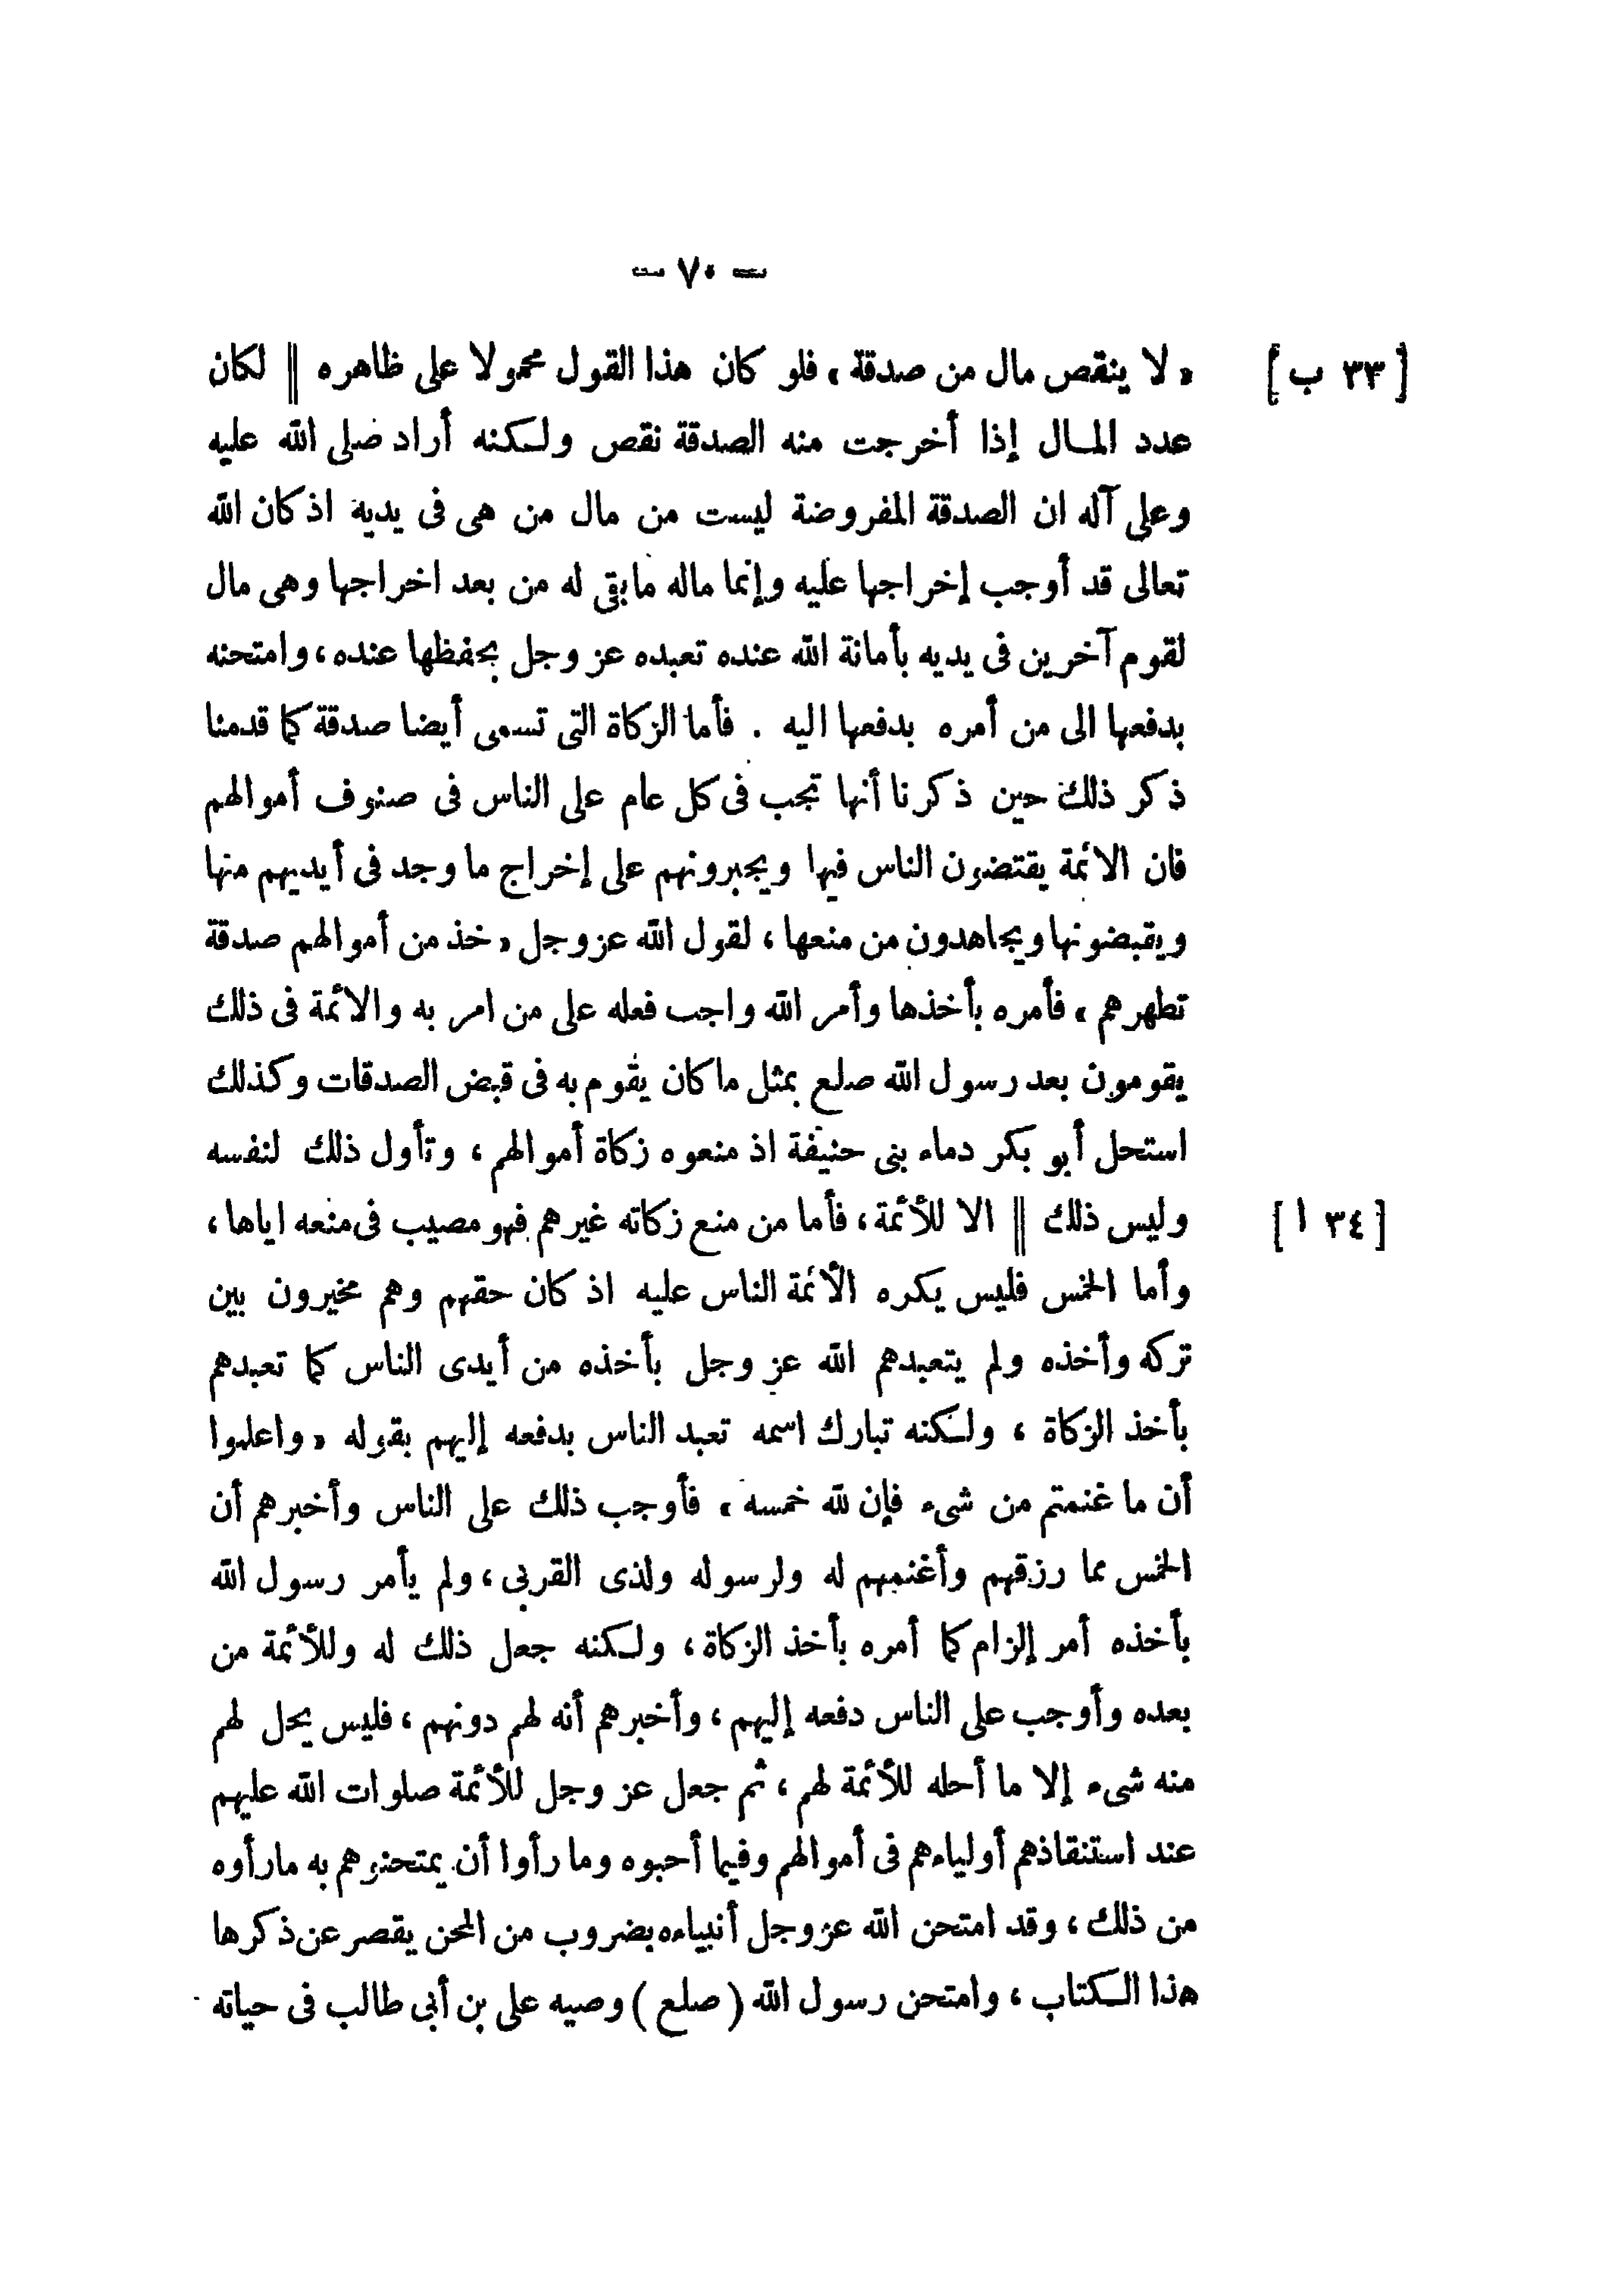 — ٧٠ —
[ ٣٣ ب ] « لا ينقص مال من صدقة » فلو كان هذا القول محمولا على ظاهره || لكان
عدد المال إذا أخرجت منه الصدقة نقص ولكنه أراد صلى الله عليه
وعلى آله ان الصدقة المفروضة ليست من مال من هى فى يديه اذ كان الله
تعالى قد أوجب إخراجها عليه وإنما ماله مابقى له من بعد اخراجها وهى مال
لقوم آخرين فى يديه بأمانة الله عنده تعبده عز وجل بحفظها عنده، وامتحنه
بدفعها الى من أمره بدفعها اليه . فأما الزكاة التى تسمى أيضا صدقة كما قدمنا
ذكر ذلك حين ذكرنا أنها تجب فى كل عام على الناس فى صنوف أموالهم
فان الائمة يقتضون الناس فيها ويجبرونهم على إخراج ما وجد فى أيديهم منها
ويقبضونها ويجاهدون من منعها ، لقول الله عز وجل « خذ من أموالهم صدقة
تطهرهم » فأمره بأخذها وأمر الله واجب فعله على من امر به والائمة فى ذلك
يقومون بعد رسول الله صلع بمثل ما كان يقوم به فى قبض الصدقات وكذلك
استحل أبو بكر دماء بنى حنيفة اذ منعوه زكاة أموالهم ، وتأول ذلك لنفسه
[ ٣٤ ا ] وليس ذلك || الا للأئمة ، فأما من منع زكاته غيرهم فهو مصيب فى منعه اياها ،
وأما الخمس فليس يكره الأئمة الناس عليه اذ كان حقهم وهم مخيرون بين
تركه وأخذه ولم يتعبدهم الله عز وجل بأخذه من أيدى الناس كما تعبدهم
بأخذ الزكاة ، ولكنه تبارك اسمه تعبد الناس بدفعه إليهم بقوله « واعلموا
أن ما غنمتم من شىء فإن لله خمسه » فأوجب ذلك على الناس وأخبرهم أن
الخمس مما رزقهم وأغنمهم له ولرسوله ولذى القربى ، ولم يأمر رسول الله
بأخذه أمر إلزام كما أمره بأخذ الزكاة ، ولكنه جعل ذلك له وللأئمة من
بعده وأوجب على الناس دفعه إليهم ، وأخبرهم أنه لهم دونهم ، فليس يحل لهم
منه شىء إلا ما أحله للأئمة لهم ، ثم جعل عز وجل للأئمة صلوات الله عليهم
عند استنقاذهم أولياءهم فى أموالهم وفيما أحبوه وما رأوا أن يمتحنوهم به مارأوه
من ذلك ، وقد امتحن الله عز وجل أنبياءه بضروب من المحن يقصر عن ذكرها
هذا الكتاب ، وامتحن رسول الله ( صلع ) وصيه على بن أبى طالب فى حياته